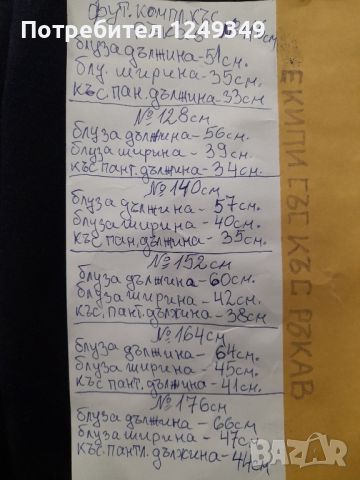 Потребител 12949347
фут. компл. къс
блуза дължина - 51см.
блу. ширина - 35см.
къс. пан. дължина - 33см
№ 128см
блуза дължина - 56см.
блуза ширина - 39см.
къс пант. дължина - 34см.
№ 140см
блуза дължина - 57см.
блуза ширина - 40см.
къс пан. дължина - 35см.
№ 152см
блуза дължина - 60см.
блуза ширина - 42см.
къс. пант. дължина - 38см
№ 164см
блуза дължина - 64см.
блуза ширина - 45см.
къс пант. дължина - 41см.
№ 176см
блуза дължина - 66см
блуза ширина - 47см
къс. пантл. дължина - 44см
ЕКИПИ СЪС КЪС РЪКАВ
BAZAR